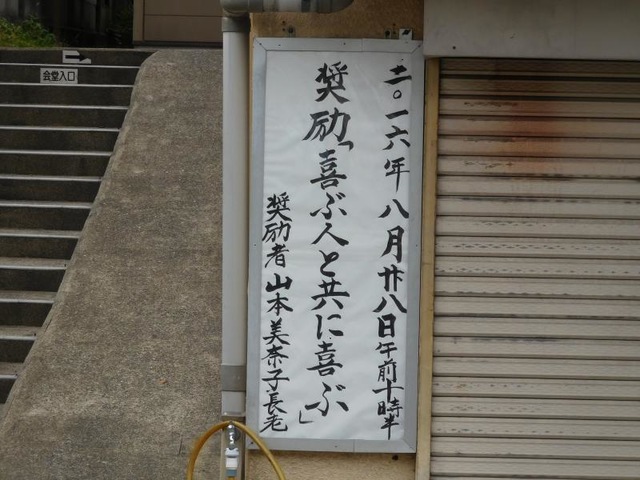 二〇一六年八月廿八日午前十時半
奨励「喜ぶ人と共に喜ぶ」
奨励者 山本美奈子長老
会堂入口